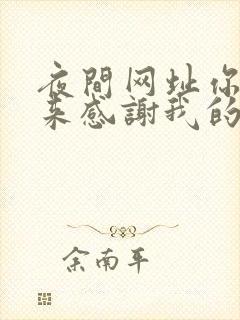 夜間网址你
来感謝我的
余南平